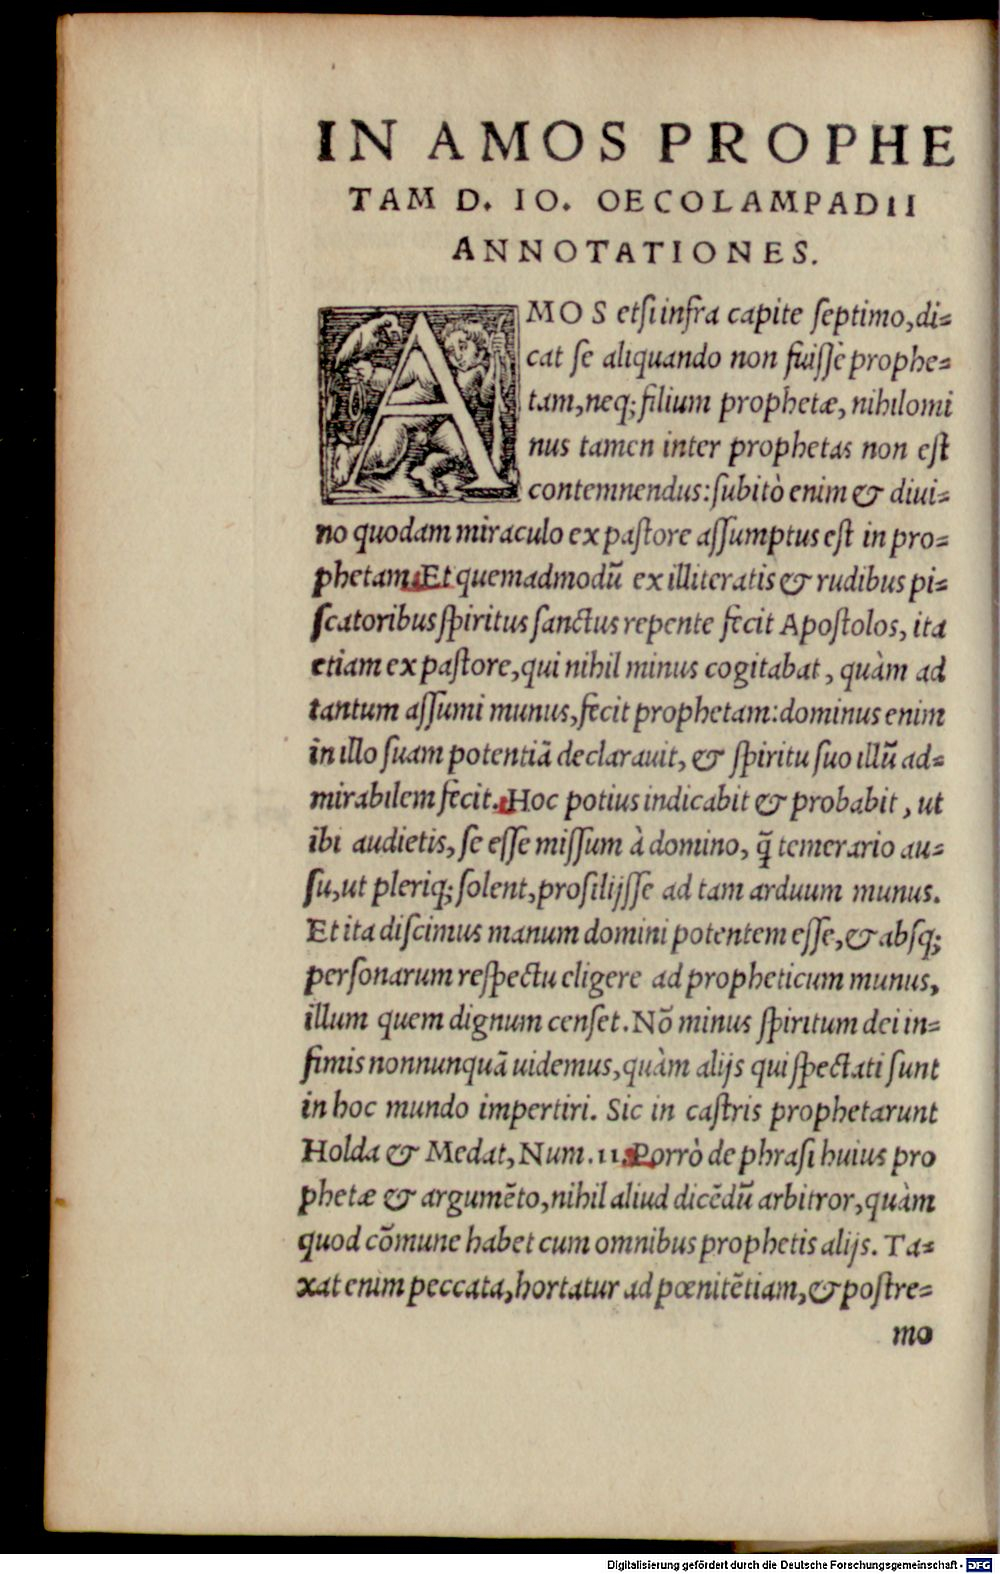 IN AMOS PROPHE
TAM D. IO. OECOLAMPADII
ANNOTATIONES.
AMOS etsi infra capite septimo, di=
cat se aliquando non fuisse prophe=
tam, neq; filium prophetæ, nihilomi
nus tamen inter prophetas non est
contemnendus: subitò enim & diui=
no quodam miraculo ex pastore assumptus est in pro=
phetam. Et quemadmodũ ex illiteratis & rudibus pi=
scatoribus spiritus sanctus repente fecit Apostolos, ita
etiam ex pastore, qui nihil minus cogitabat, quàm ad
tantum assumi munus, fecit prophetam: dominus enim
in illo suam potentiã declarauit, & spiritu suo illũ ad=
mirabilem fecit. Hoc potius indicabit & probabit, ut
ibi audietis, se esse missum à domino, q̃ temerario au=
su, ut pleriq; solent, prosilijsse ad tam arduum munus.
Et ita discimus manum domini potentem esse, & absq;
personarum respectu eligere ad propheticum munus,
illum quem dignum censet. Nõ minus spiritum dei in=
fimis nonnunquã uidemus, quàm alijs qui spectati sunt
in hoc mundo impertiri. Sic in castris prophetarunt
Holda & Medat, Num. 11. Porrò de phrasi huius pro
phetæ & argumẽto, nihil aliud dicẽdũ arbitror, quàm
quod cõmune habet cum omnibus prophetis alijs. Ta=
xat enim peccata, hortatur ad pœnitẽtiam, & postre=
mo
Digitalisierung gefördert durch die Deutsche Forschungsgemeinschaft - DFG